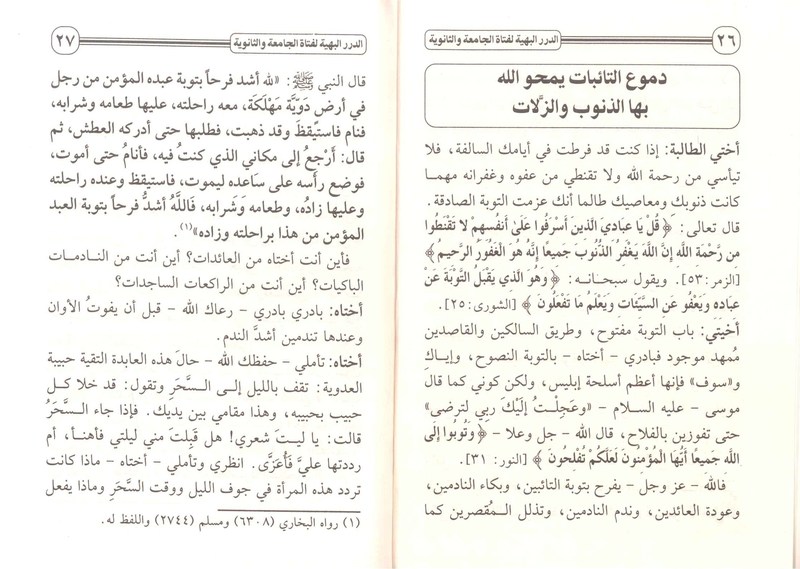 ٢٦
الدرر البهية لفتاة الجامعة والثانوية
دموع التائبات يمحو الله
بها الذنوب والزَّلات
أختي الطالبة: إذا كنت قد فرطت في أيامك السالفة، فلا
تيأسي من رحمة الله ولا تقنطي من عفوه وغفرانه مهما
كانت ذنوبك ومعاصيك طالما أنك عزمت التوبة الصادقة.
قال تعالى: ﴿ قُلْ يَا عِبَادِيَ الَّذِينَ أَسْرَفُوا عَلَىٰ أَنفُسِهِمْ لا تَقْنَطُوا
مِن رَّحْمَةِ اللَّهِ إِنَّ اللَّهَ يَغْفِرُ الذُّنُوبَ جَمِيعًا إِنَّهُ هُوَ الْغَفُورُ الرَّحِيمُ ﴾
[الزمر:٥٣]. ويقول سبحانه: ﴿ وَهُوَ الَّذِي يَقْبَلُ التَّوْبَةَ عَنْ
عِبَادِهِ وَيَعْفُو عَنِ السَّيِّئَاتِ وَيَعْلَمُ مَا تَفْعَلُونَ ﴾ [الشورى:٢٥].
أُخيتي: باب التوبة مفتوح، وطريق السالكين والقاصدين
مُمهد موجود فبادري – أختاه – بالتوبة النصوح، وإياكِ
و«سوف» فإنها أعظم أسلحة إبليس، ولكن كوني كما قال
موسى – عليه السلام – «وعَجِلْتُ إِلَيْكَ رَبِي لترضى»
حتى تفوزين بالفلاح، قال الله – جل وعلا – ﴿ وَتُوبُوا إِلَى
اللَّهِ جَمِيعًا أَيُّهَا الْمُؤْمِنُونَ لَعَلَّكُمْ تُفْلِحُونَ ﴾ [النور: ٣١].
فالله – عز وجل – يفرح بتوبة التائبين، وبكاء النادمين،
وعودة العائدين، وندم النادمين، وتذلل المُقصرين كما
الدرر البهية لفتاة الجامعة والثانوية
٢٧
قال النبي ﷺ: «لله أشد فرحاً بتوبة عبده المؤمن من رجل
في أرضٍ دَوِّيَّة مَهْلَكَة، معه راحلته، عليها طعامه وشرابه،
فنام فاستيقظ وقد ذهبت، فطلبها حتى أدركه العطش، ثم
قال: أَرْجعُ إلى مكاني الذي كنتُ فيه، فأنامُ حتى أموت،
فوضع رأسه على ساعده ليموت، فاستيقظ وعنده راحلته
وعليها زادُه، وطعامه وَشَرابه، فَاللَّهُ أشدُّ فرحاً بتوبة العبد
المؤمن من هذا براحلته وزاده»(١).
فأين أنت أختاه من العائدات؟ أين أنت من النادمات
الباكيات؟ أين أنت من الراكعات الساجدات؟
أختاه: بادري بادري – رعاك الله – قبل أن يفوتُ الأوان
وعندها تندمين أشدَّ الندم.
أختاه: تأملي – حفظك الله – حالَ هذه العابدة التقية حبيبة
العدوية: تقف بالليل إلى السَّحَرِ وتقول: قد خلا كل
حبيب بحبيبه، وهذا مقامي بين يديك. فإذا جاء السَّحَرُ
قالت: يا ليتَ شعري! هل قَبِلتَ مني ليلتي فأهنأ، أم
رددتها عليَّ فَأُعَزَّى. انظري وتأملي – أختاه – ماذا كانت
تردد هذه المرأة في جوف الليل ووقت السَّحَر وماذا يفعل
(١) رواه البخاري (٦٣٠٨) ومسلم (٢٧٤٤) واللفظ له.